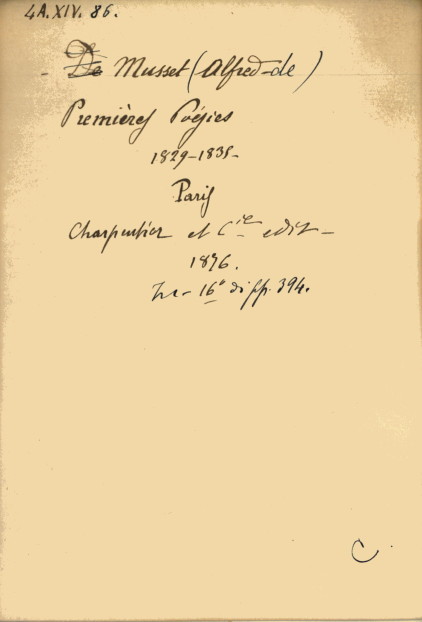 4A.XIV. 86.
- De Musset (Alfred-de)
Premières Poésies
1829-1835-
Paris
Charpentier et Cie edit-
1876.
In- 16° di pp. 394.
C.